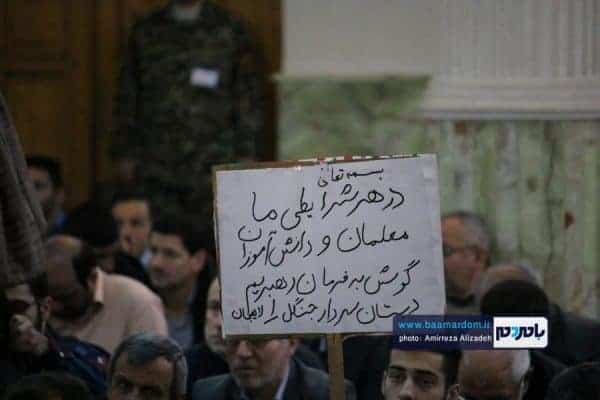 بسمه تعالی
در هر شرایطی ما
معلمان و دانش آموزان
گوش به فرمان رهبریم
دبستان سردار جنگل لاهیجان
www.baamardom.ir
بامردم
photo: Amirreza Alizadeh